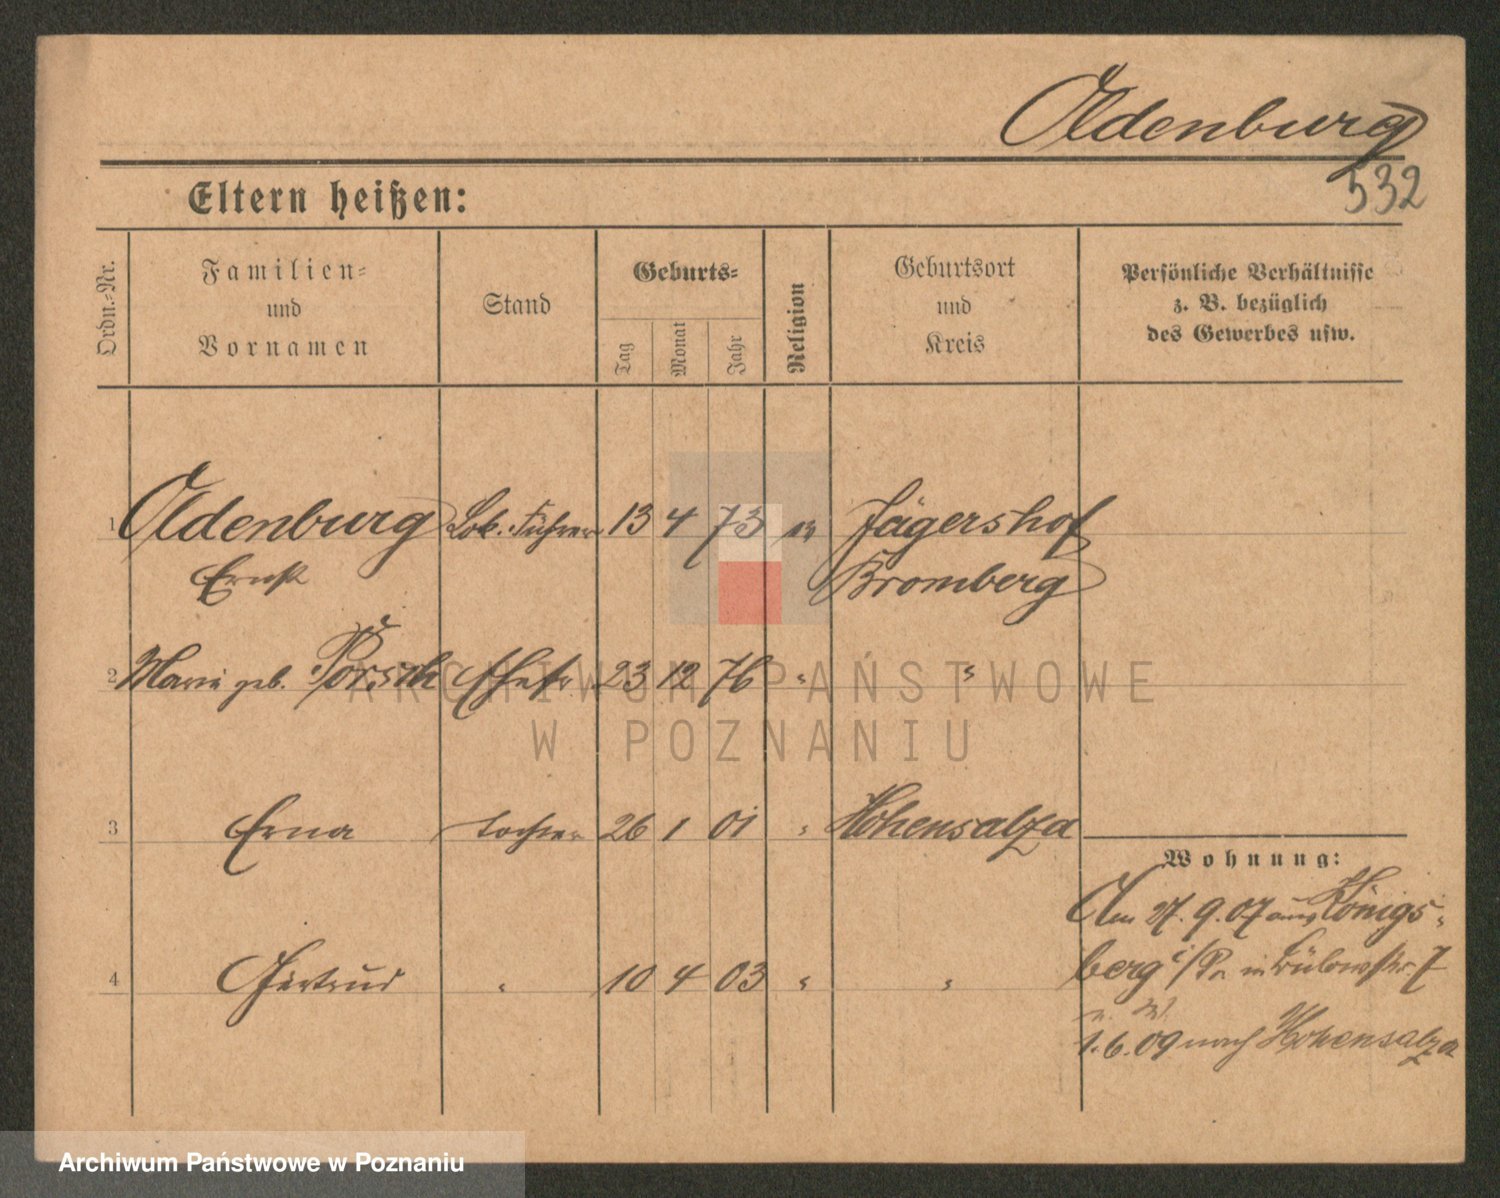 Oldenburg
532
Eltern heißen:
Ordn.-Nr.
Familien- und Vornamen
Stand
Geburts-
Tag
Monat
Jahr
Religion
Geburtsort und Kreis
Persönliche Verhältnisse
z. B. bezüglich
des Gewerbes usw.
1 Oldenburg Lok. Führer 13 4 73 Jägershof
Ernst Bromberg
2 Marie geb. Porsch Ehefr. 23 12 76 " "
3 Erna Tochter 26 1 01 " Hohensalza
Wohnung:
Am 27. 9. 07 aus Königs-
4 Gertrud " 10 4 03 " "
berg i/Pr. in Bülowstr. 7
1. 6. 09 nach Hohensalza
ARCHIWUM PAŃSTWOWE
W POZNANIU
Archiwum Państwowe w Poznaniu